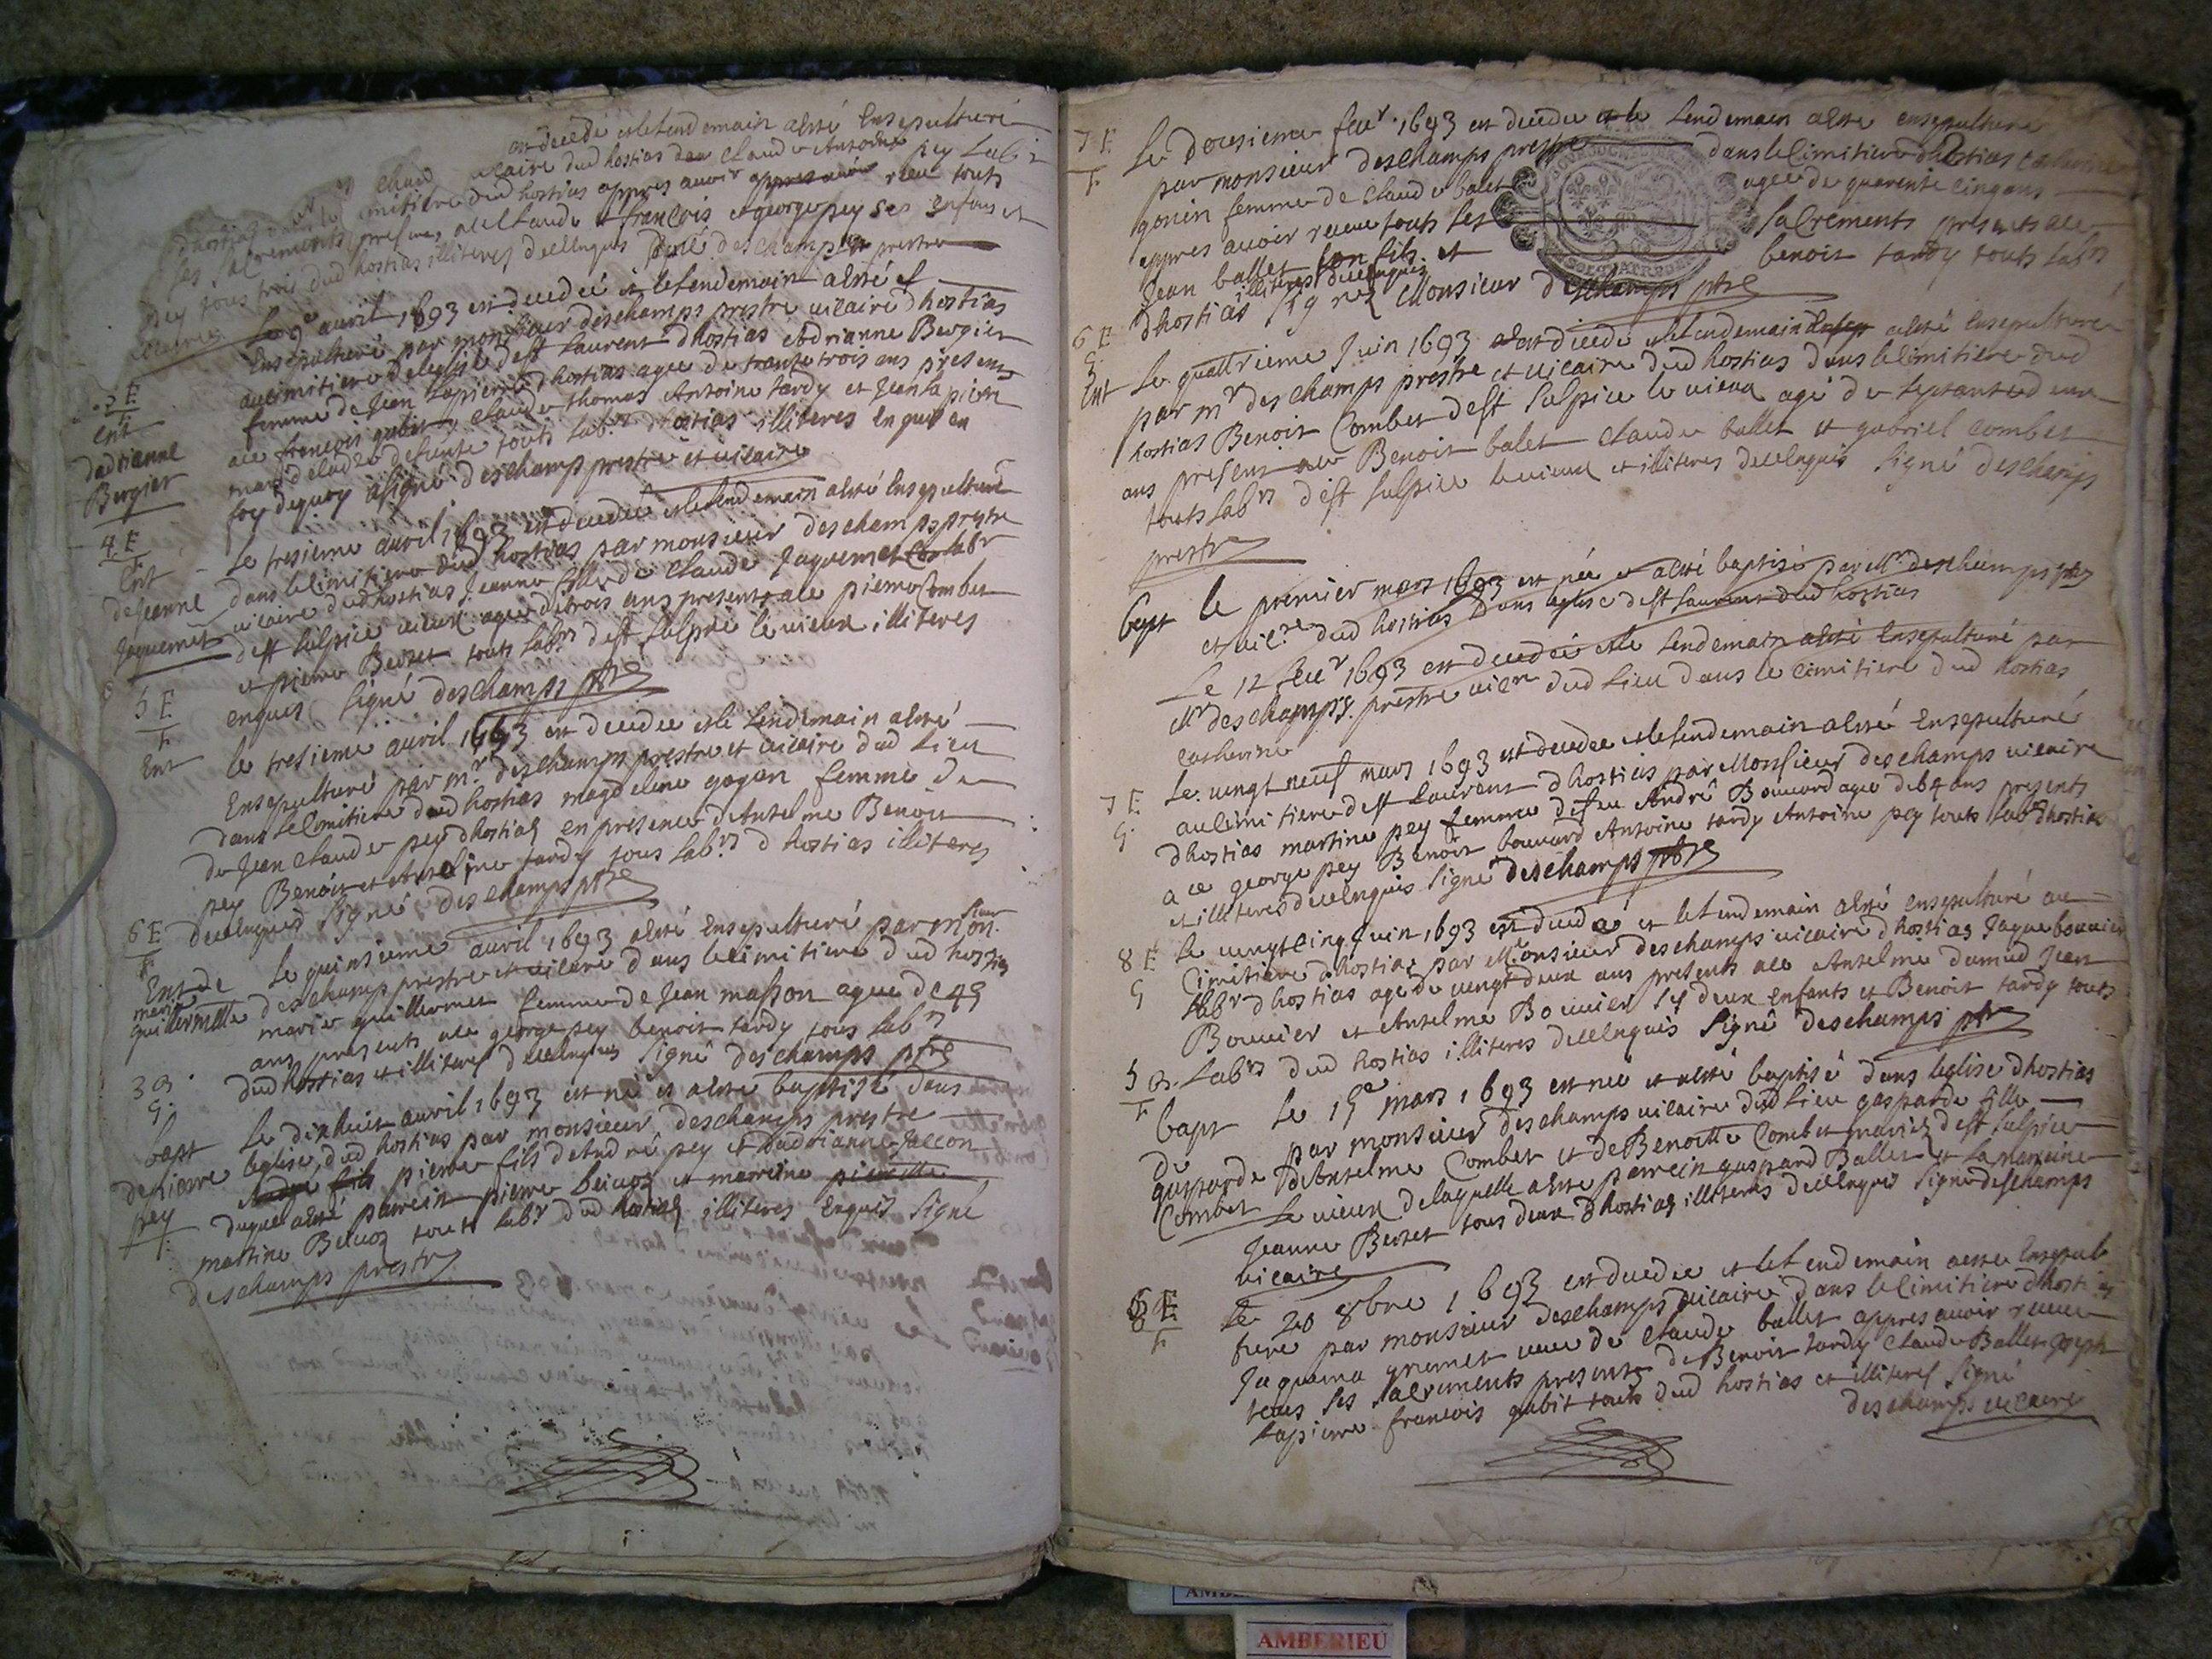 est decedé et le lendemain a esté Ensepulturé
vicaire dud hostias claude Antoine pey Lab.r
cimitiere dud hostias appres avoir receu touts
les sacrements presens, a ce Claude et francois et george pey ses enfans et
pey tous trois dud hostias illiteres de ce Enquis signé deschamps prestre
Le 9e avril 1693 est decedeé et le lendemain a esté
Ensepulturé par monsieur deschamps prestre vicaire dhostias
au cimitiere de leglise de st Laurent dhostias Adrianne Bergier
femme de Jean Lapierre dhostias agee de trante trois ans presens
a ce francois gubit Claude thomas Antoine tardy et Jean Lapierre
mary de ladte defunte touts lab.rs dhostias illiteres Enquis en
foy dequoy a signé deschamp prestre et vicaire
3 E
F
Ent
dadrianne
Bergier
4 E
F
Ent
de Jeanne
Jaquemet
Le tresieme avril 1693 est decedeé et le lendemain a esté Ensepulturé
dans le cimitiere dud hostias par monsieur deschamps prestre
vicaire dud hostias Jeanne fille de Claude Jaquemet lab.r
de st sulpice vieux ageé de trois ans presents a ce pierre Combet
et pierre Berset touts lab.rs de st sulpice le vieux illiteres
enquis signé deschamps ptre
5 E
F
Ent
le tresieme avril 1693 est decedeé et le lendemain a esté
Ensepulturé par m.r deschamps prestre et vicaire dud Lieu
dans le Cimitiere dud hostias magdeleine gogan femme de
de Jean Claude pey dhostias en presence dAntelme Benoit
pey Benoit et Antelme tardy tous lab.rs dhostias illiteres
de ce enquis signé deschamps ptre
6 E
F
Ent de
marie
guillermette
le quinsieme avril 1693 a esté Ensepulturé par mon.sieur
deschamps prestre et vicaire dans le cimitiere dud hostias
marie guillermet femme de Jean masson ageé de 45
ans presents a ce george pey benoit tardy tous lab.rs
dud hostias et illiteres de ce enquis signé deschamps ptre
3 B
G
bapt
de pierre
pey
Le dixhuit avril 1693 est né et a esté baptisé dans
leglise dud hostias par monsieur deschamps prestre
pierre fils dAndré pey et dadrianne Jaccon
duquel a esté parrein pierre Beivoz et marreine pierrette
martine Beivoz touts lab.r dud hostias illiteres Enquis signé
deschamps prestre
7 E
F
Le dousieme fevr 1693 est decedee et le Lendemain a esté ensepulturé
par monsieur deschamps prestre dans le Cimitiere dhostias catherine
gonin femme de Claude balet agee de quarente cinq ans
appres avoir receu touts les sacrements presents a ce
Jean ballet son fils et benoit tardy touts lab.rs
illiteres de ce enquis
dhostias signez Monsieur deschamps ptre
6 E
G
Ent
Le quattrieme Juin 1693 est decedé et le lendemain a esté Ensepulturé
par m.r deschamps prestre et vicaire dud hostias dans le cimitiere dud
hostias Benoit Combet de st sulpice le vieux agé de septante deux
ans presens a ce Benoit balet Claude ballet et gabriel Combet
touts lab.rs de st sulpice le vieux et illiteres de ce enquis signé deschamps
prestre
bapt
le premier mars 1693 est née et a esté baptisé par M.r deschamps ptre
et vic.re dud hostias dans leglise de st laurent dud hostias
Le 12 fevr 1693 est decedeé et le lendemain a esté Ensepulturé par
Mr deschamps prestre vic.re dud Lieu dans le cimitiere dud hostias
Catherine
7 E
G
Le vingt neuf mars 1693 est decedee et le lendemain a esté Ensepulturé
au cimitiere de st laurent dhostias par Monsieur deschamps vicaire
dhostias martine pey femme de feu André Bouvard agee de 64 ans presents
a ce george pey Benoit bouvard Antoine tardy Antoine pey touts lab.rs dhostias
et illiteres de ce enquis signé deschamps ptre
8 E
G
Le vingt cinq Juin 1693 est decedé et le lendemain a esté ensepulturé au
Cimitiere dhostias par Monsieur deschamps vicaire dhostias Jaque bouvier
labr dhostias agé de vingt deux ans presents a ce Antelme dumud Jean
Bouvier et Antelme Bouvier ses deux enfants et Benoit tardy touts
Labrs dud hostias illiteres de ce enquis signé deschamps ptre
5 B
F
bapt
de
gasparde
Combet
Le 15e mars 1693 est neé et a esté baptisé dans leglise dhostias
par monsieur deschamps vicaire dud Lieu gasparde fille
dAntelme Combet et de Benoitte Combet mariez de st sulpice
Le vieux de laquelle a esté parrein gaspard Ballet et la marreine
Jeanne Berset tous deux dhostias illiteres de ce enquis signé deschamps
vicaire
8 E
F
Le 20 8bre 1693 est decedee et le lendemain a esté Ensepul
turé par monsieur deschamps vicaire dans le cimitiere dhostias
Jaquema grumet veuve de Claude ballet appres avoir receu
tous ses sacrements presents de Benoit tardy Claude Ballet Joseph
Lapierre francois gubit touts dud hostias et illiteres signé
deschamps vicaire
AMBERIEU